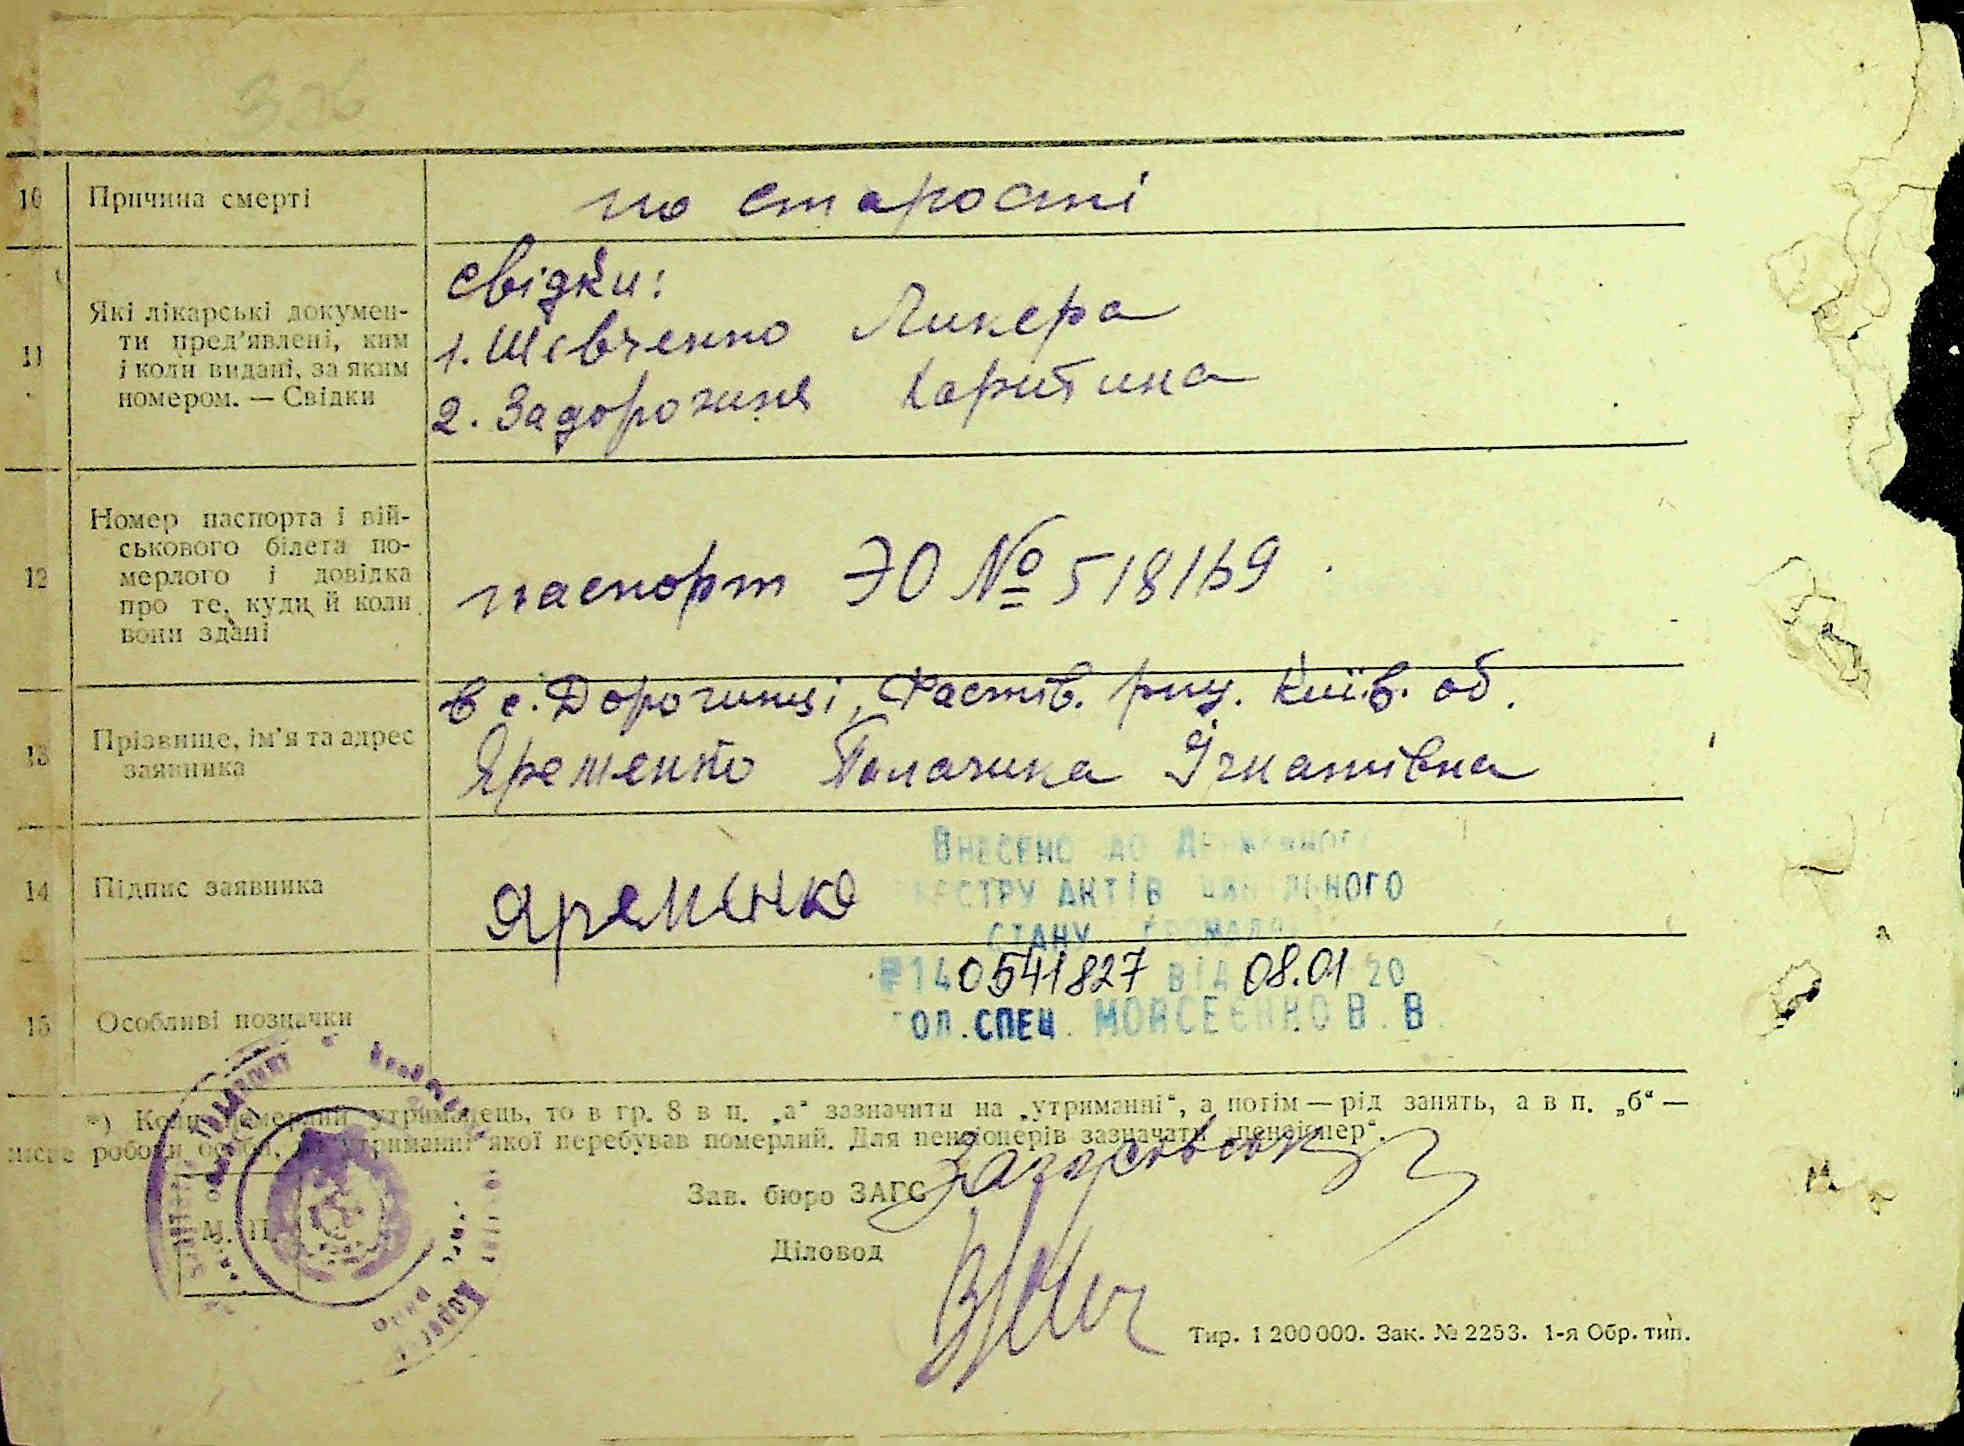 10 Причина смерті по старості
11 Які лікарські докумен-
ти пред'явлені, ким
і коли видані, за яким
номером. — Свідки
свідки:
1. Шевченко Ликера
2. Задорожня Харитина
12 Номер паспорта і вій-
ськового білета по-
мерлого і довідка
про те, куди й коли
вони здані
паспорт ЭО № 518169
13 Прізвище, ім'я та адрес
заявника
в с. Дорогинці, Фастів. рну. Київ. об.
Яременко Палажка Ігнатівна
14 Підпис заявника Яременко
Внесено до Державного
реєстру актів цивільного
стану громадян
№140541827 від 08.01 20
гол. спец. Мойсеєнко В. В.
15 Особливі позначки
*) Коли померлий утриманець, то в гр. 8 в п. „а“ зазначити на „утриманні“, а потім — рід занять, а в п. „б“ —
місце роботи особи, на утриманні якої перебував померлий. Для пенсіонерів зазначати „пенсіонер“.
Зав. бюро ЗАГС
М. П.
Діловод
Тир. 1 200 000. Зак. № 2253. 1-я Обр. тип.